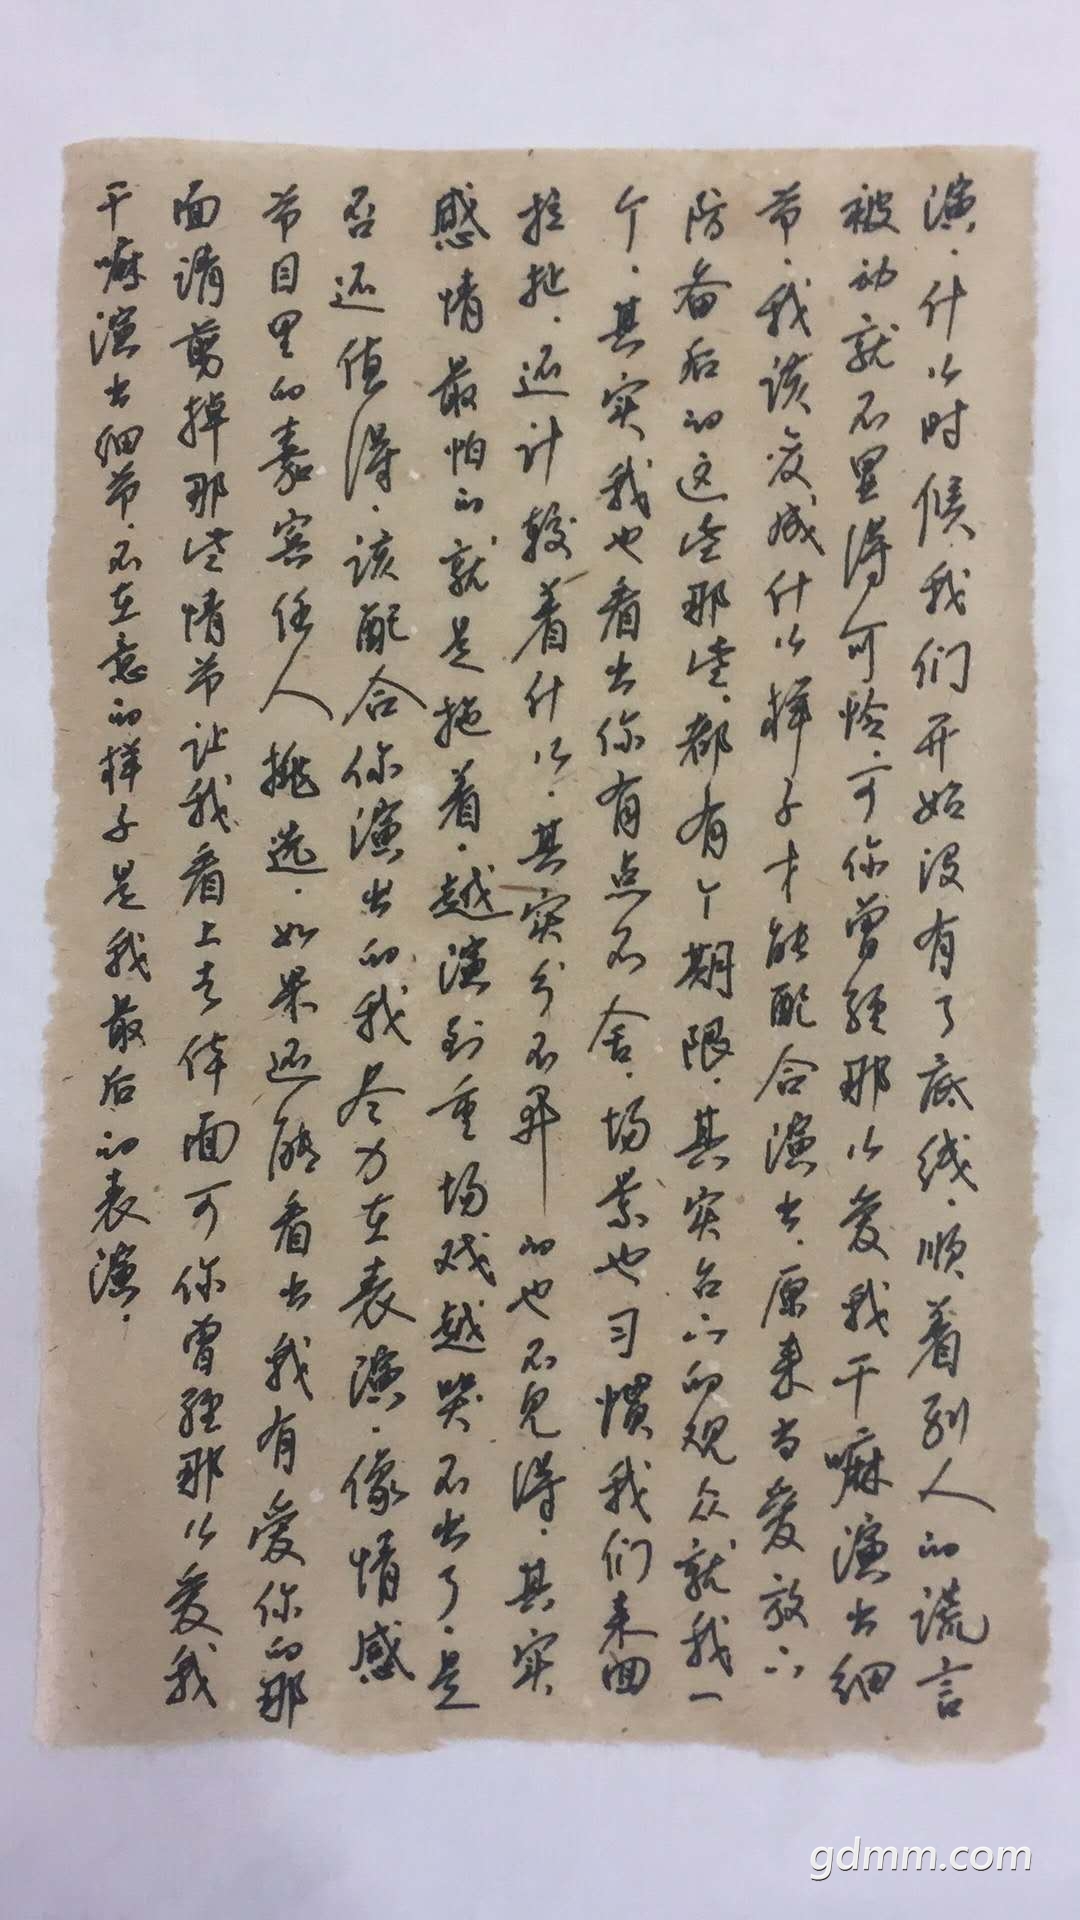 演.什么时候我们开始没有了底线.顺着别人的谎言
被动就不显得可怜.可你曾经那么爱我干嘛演出细
节.我该变成什么样子才能配合演出.原来当爱放下
防备后的这些那些.都有个期限.其实台下的观众就我一
个.其实我也看出你有点不舍.场景也习惯我们来回
拉扯.还计较着什么.其实分不开的也不见得.其实
感情最怕的就是拖着.越演到重场戏越哭不出了.是
否还值得.该配合你演出的我尽力在表演.像情感
节目里的嘉宾任人挑选.如果还能看出我有爱你的那
面请剪掉那些情节让我看上去体面可你曾经那么爱我
干嘛演出细节.不在意的样子是我最后的表演.
gdmm.com